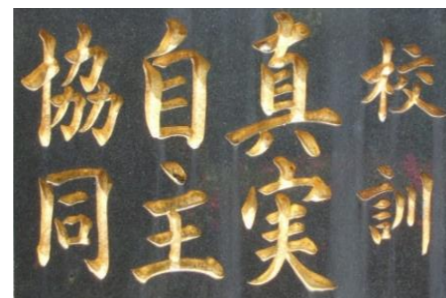 校訓
真実
自主
協同